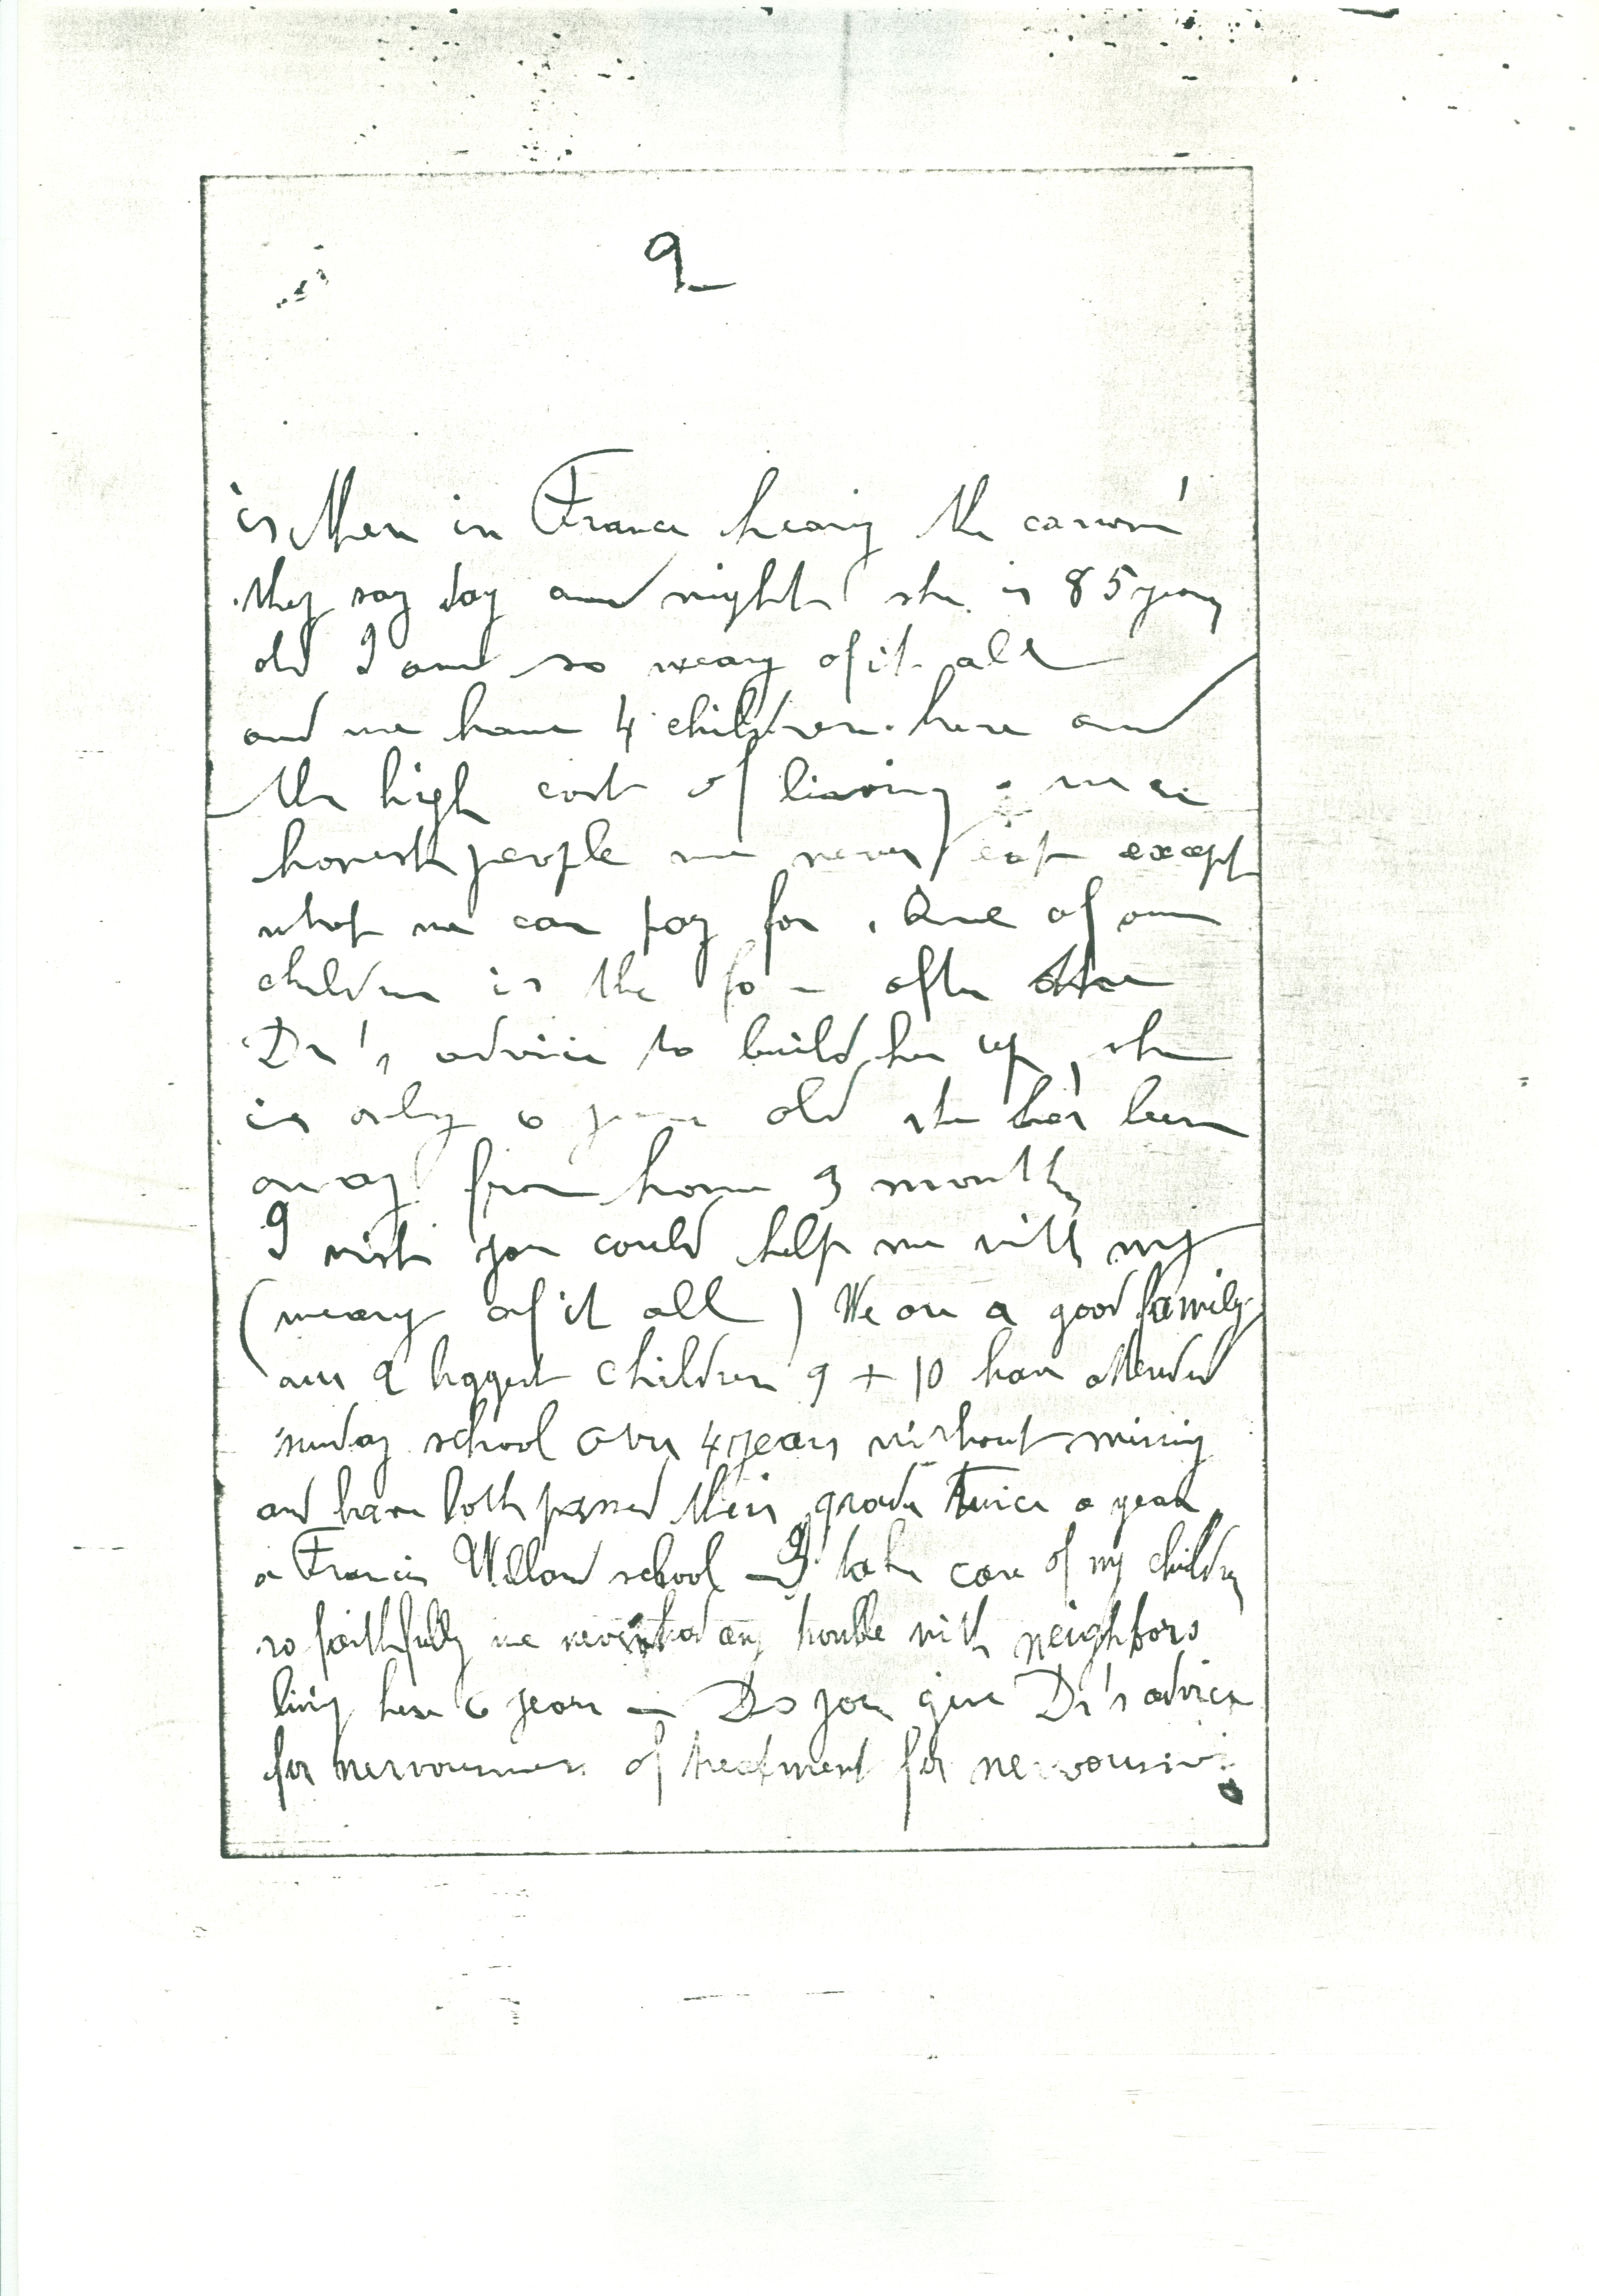 2
is then in France hearing the cannon'
they say day and night she is 85 years
old I am so weary of it all
and we have 4 children here and
the high cost of living we are
honest people we never eat except
what we can pay for . One of our
children is the after the
Dr's advice to build her up , she
is only 6 years old she has been
away from home 3 months
I wish you could help me with my
(weary of it all ) We are a good family
our 2 biggest children 9 + 10 have attended
sunday school over 4 years without missing
and have both passed their grade Twice a year
a Francis Willard school — I take care of my children
so faithfully we never had any trouble with neighbors
living here 6 years — Do you give Dr's advice
for nervousness of treatment for